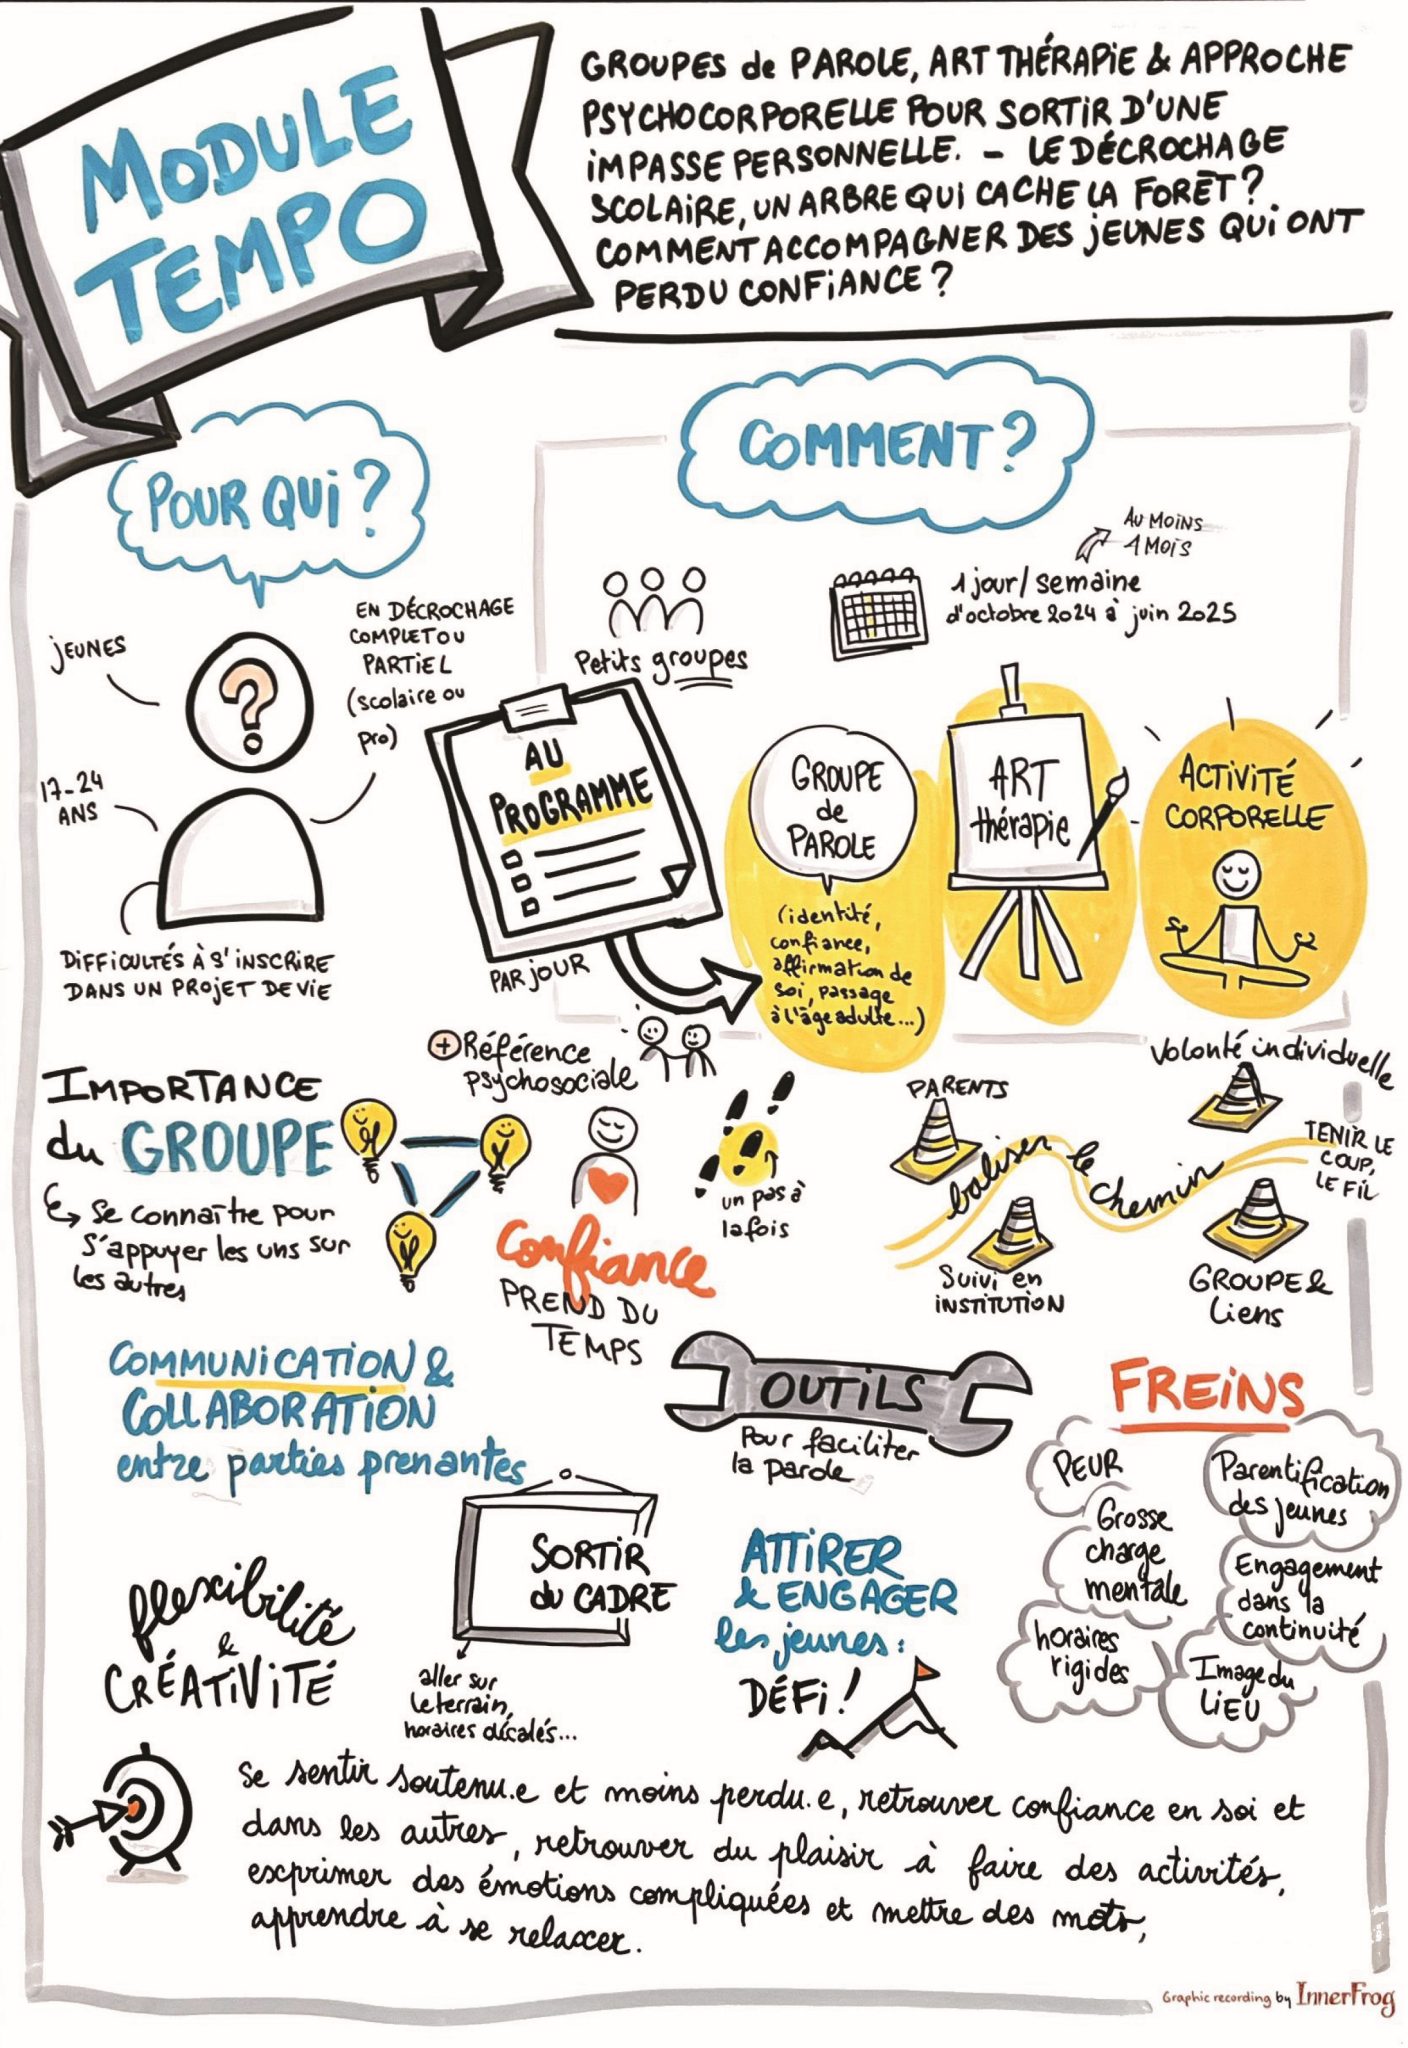 MODULE
TEMPO
GROUPES de PAROLE, ART THÉRAPIE & APPROCHE
PSYCHOCORPORELLE POUR SORTIR D'UNE
IMPASSE PERSONNELLE. – LE DÉCROCHAGE
SCOLAIRE, UN ARBRE QUI CACHE LA FORÊT?
COMMENT ACCOMPAGNER DES JEUNES QUI ONT
PERDU CONFIANCE?
POUR QUI?
JEUNES
EN DÉCROCHAGE
COMPLET OU
PARTIEL
(scolaire ou
pro)
17-24
ANS
DIFFICULTÉS À S'INSCRIRE
DANS UN PROJET DE VIE
COMMENT?
Petits groupes
AU MOINS
1 MOIS
1 jour/semaine
d'octobre 2024 à juin 2025
AU
PROGRAMME
PAR JOUR
GROUPE
de
PAROLE
(identité,
confiance,
affirmation de
soi, passage
à l'âge adulte...)
ART
thérapie
ACTIVITÉ
CORPORELLE
+ Référence
psychosociale
IMPORTANCE
du GROUPE
Se connaître pour
s'appuyer les uns sur
les autres
Confiance
PREND DU
TEMPS
un pas à
la fois
PARENTS
Volonté individuelle
baliser le chemin
TENIR LE
COUP,
LE FIL
Suivi en
INSTITUTION
GROUPE &
Liens
COMMUNICATION &
COLLABORATION
entre parties prenantes
OUTILS
Pour faciliter
la parole
FREINS
PEUR
Parentification
des jeunes
Grosse
charge
mentale
Engagement
dans la
continuité
horaires
rigides
Image du
LIEU
flexibilité
&
CRÉATIVITÉ
SORTIR
du CADRE
aller sur
le terrain,
horaires décalés...
ATTIRER
& ENGAGER
les jeunes:
DÉFI!
Se sentir soutenu.e et moins perdu.e, retrouver confiance en soi et
dans les autres, retrouver du plaisir à faire des activités,
exprimer des émotions compliquées et mettre des mots,
apprendre à se relaxer.
Graphic recording by InnerFrog